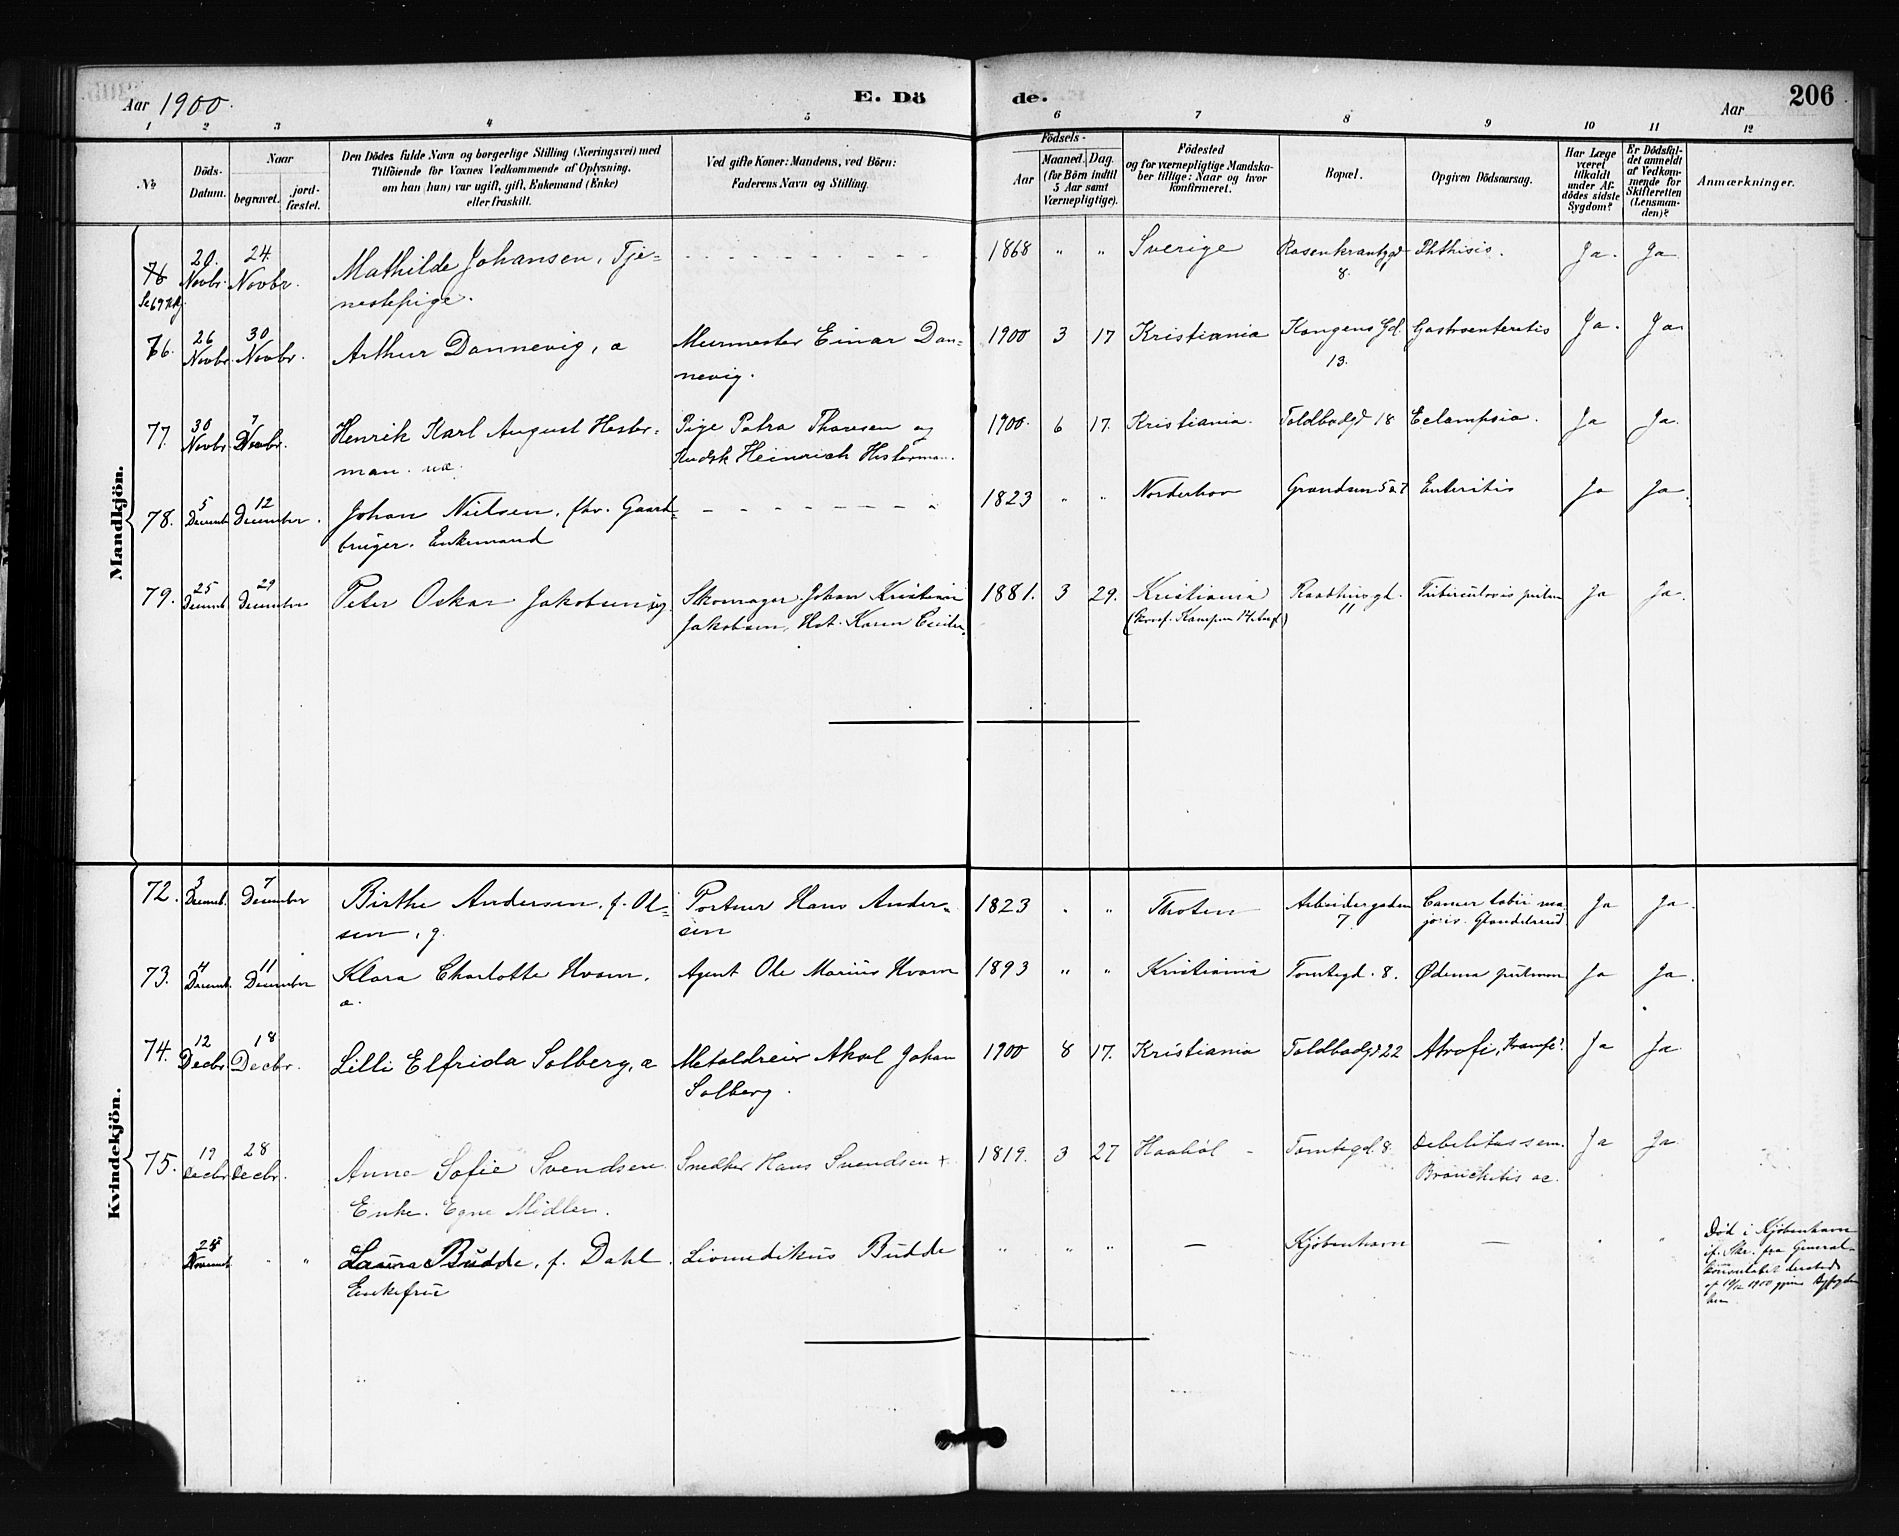 Aar 1900. E. Dö de. Aar 206
1 2 3 4 5 6 7 8 9 10 11 12
№
Döds-
Datum.
Naar
begravet.
jord-
fæstet.
Den Dödes fulde Navn og borgerlige Stilling (Næringsvei) med
Tilföiende for Voxnes Vedkommende af Oplysning,
om han (hun) var ugift, gift, Enkemand (Enke)
eller fraskilt.
Ved gifte Koner: Mandens, ved Börn:
Faderens Navn og Stilling.
Födsels-
Aar
Maaned. Dag.
(for Börn indtil
5 Aar samt
Værnepligtige).
Födested
og for værnepligtige Mandska-
ber tillige: Naar og hvor
konfirmeret.
Bopæl.
Opgiven Dödsaarsag.
Har Læge
været
tilkaldt
under Af-
dödes sidste
Sygdom?
Er Dödsfal-
det anmeldt
af Vedkom-
mende for
Skifteretten
(Lensman-
den)?
Anmærkninger.
Mandkjön.
76 20. Novbr. 24. Novbr. Mathilde Johansen, Tje- 1868 " " Sverige Rosenkrantzgd Phthisis. Ja. Ja
nestepige. 8.
76. 26 Novbr. 30 Novbr. Arthur Dannevig, æ Murmester Einar Dan- 1900 3 17 Kristiania Kongens Gd. Gastroenteritis Ja. Ja
nevig. 13.
77. 30 Novbr. 7 Henrik Karl August Hester- Pige Petra Thoresen og 1900. 6 17. Kristiania. Toldbodgd 18 Eclampsia. Ja Ja.
man. uæ. Heinrich Hesterman.
78. 5 Decemb. 12 December. Johan Nielsen, fhv. Gaard- 1823 " " Norderhov Grændsen 5 Enteritis Ja Ja.
bruger. Enkemand
79. 25 Decemb. 29 December Peter Oskar Jakobsen ug. Skomager Johan Kristian 1881. 3 29. Kristiania Raadhusgd. Tuberculosis pulm Ja Ja.
Jakobsen, Hst. Karen (konf. Kampen 11
Kvindekjön.
72. 3 Decemb. 7 December Birthe Andersen, f. Ol- Portner Hans Ander- 1823 " " Thoten Arbeidergaden Cancer labii ma- Ja Ja.
sen, g. sen 7 joris.
73. 4 Decemb. 11 December Klara Charlotte Hvam, Agent Ole Marius Hvam 1893 " " Kristiania Tomtegd. 8. Ødema pulmon Ja Ja.
æ.
74. 12 Decbr. 18 Decbr. Lilli Elfrida Solberg, æ Metaldreier Aksel Johan 1900 8 17. Kristiania Toldbodgd 22 Atrofi, Krampe? Ja Ja
Solberg.
75. 19 Decbr. 28 Decbr. Anne Sofie Svendsen Snedker Hans Svendsen + 1819. 3 27 Haabøl Tomtegd. 8 Debilitas sen. Ja Ja
Enke. Egne Midler. Bronchitis ac.
Novemb. " " Laura Budde, f. Dahl. Livmedikus Budde " " " — Kjöbenhavn — " " Död i Kjöbenhavn
Enkefrue if. Skr. fra General-
konsulatet dersteds
af 10/12 1900 gjen